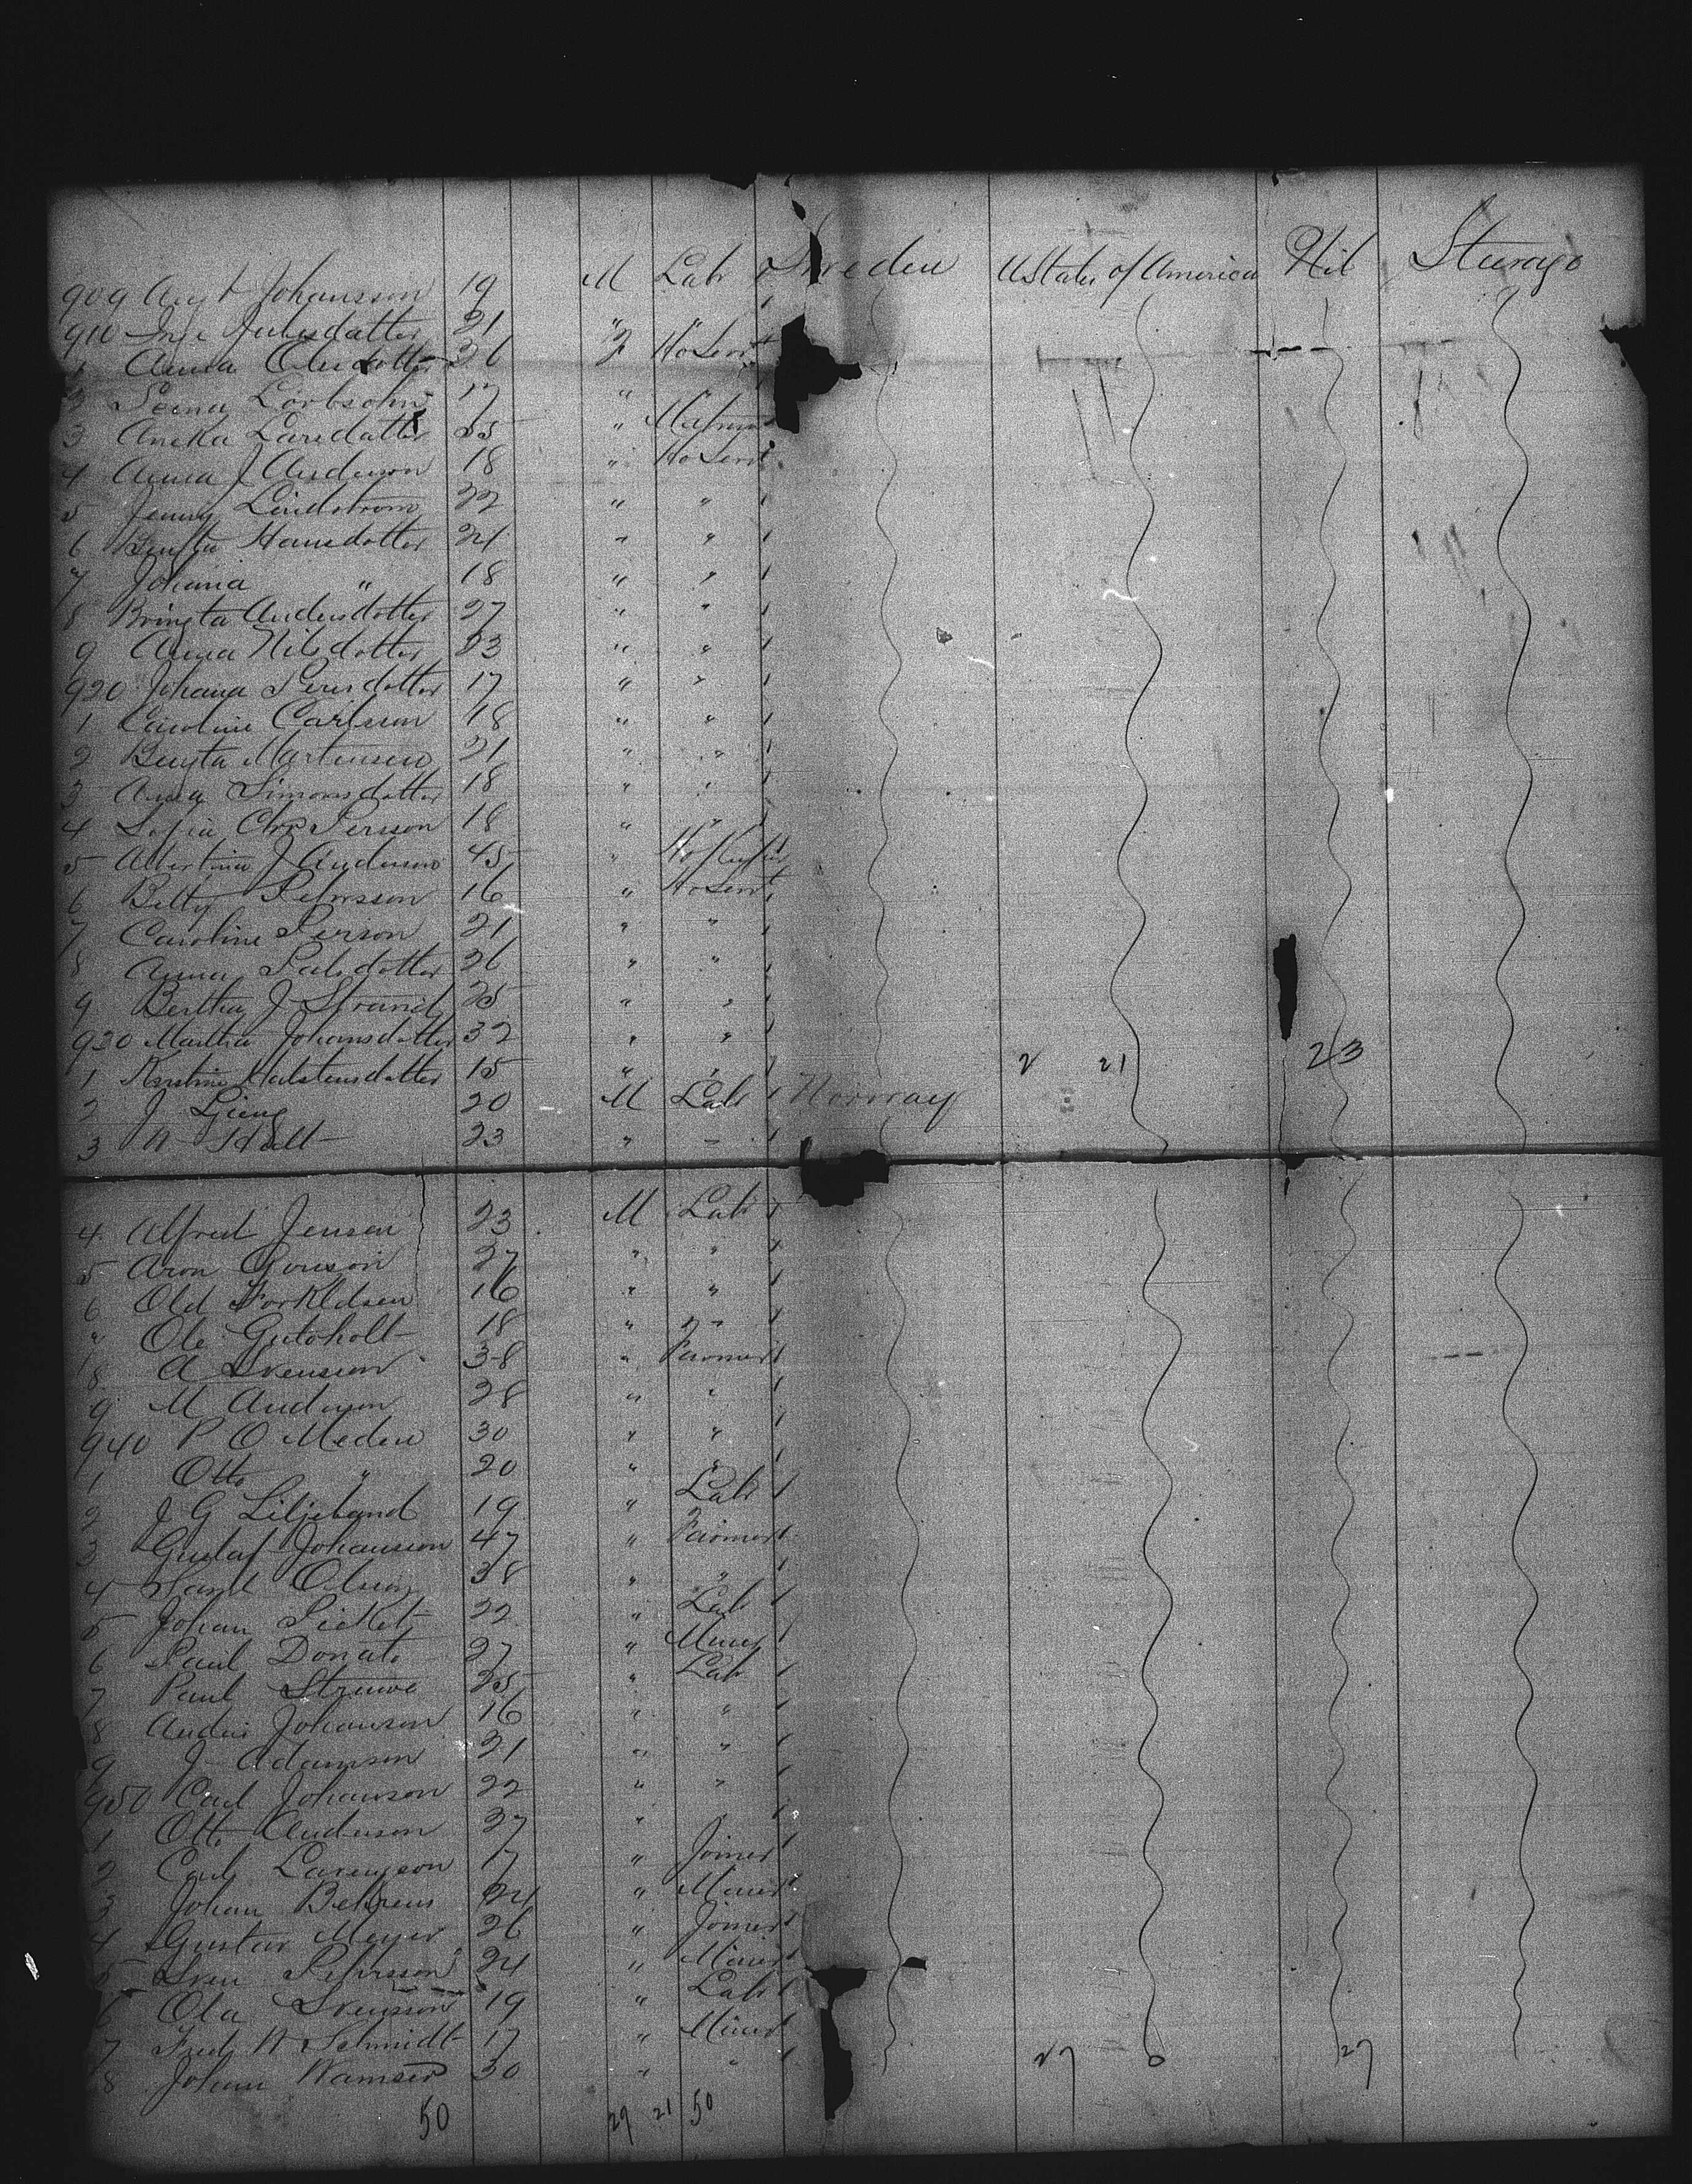 909 Aug t Johansson 19 M Lab 1 Sweden U States of America Nil Sturage
910 Inge Julesdatter 21 " " 1
1 Anna Olesdotter 26 F Ho Servt
2 17 "
3 Larsdatter 35 "
4 Anna J Anderson 18 " Ho Servt
5 Jenny Lindstrom 22 " " 1
6 Bengta Hansdotter 24 " " 1
7 Johana " 18 " " 1
8 Bringta Andersdotter 27 " " 1
9 Anna Nilsdotter 23 " " 1
920 Johana Persdotter 17 " " 1
1 Caroline Carlsson 18 " " 1
2 Bengta Martensen 21 " " 1
3 Anna Simonsdotter 18 " " 1
4 Sofia Chr Persson 18 " " 1
5 Albertina J Anderson 45 "
6 Betty Pehrsson 16 " Ho Servt 1
7 Caroline Person 21 " " 1
8 Anna Palsdotter 26 " " 1
9 Bertha J Strand 25 " " 1
930 Martha Johansdotter 32 " " 1
1 Kristine Halstensdotter 15 " " 1 2 21 23
2 J 20 M Lab 1 Norway
3 23 " " 1
4 Alfred Jensen 23 M Lab 1
5 Aron 27 " " 1
6 Old Torkldsen 16 " " 1
" Ole Gutoholt 18 " " 1
8 A Svenson 38 " Farmer 1
9 M Anderson 28 " " 1
940 P O Meden 30 " " 1
1 Otto " 20 " " 1
2 J G Liljeband 19 " Lab 1
3 Gustaf Johansson 47 " Farmer 1
4 38 " " 1
5 Johan Picket 22 " Lab 1
6 Paul Donato 27 " Miner 1
7 Paul Struwe 25 " Lab 1
8 Johanson 16 " " 1
9 J Adamson 21 " " 1
950 Carl Johanson 22 " " 1
1 Otto Anderson 27 " 1
2 Carl 17 " Joiner 1
3 Johan Behrens 24 " Miner 1
4 Gustav Meyer 26 " Joiner 1
5 Sven Pehrsson 24 " Miner 1
6 Ola Svensson 19 " Lab 1
7 Fred W Schmidt 17 " Miner
8 Johann Wamser 30 " " 1 27 0 27
50 29 21 50